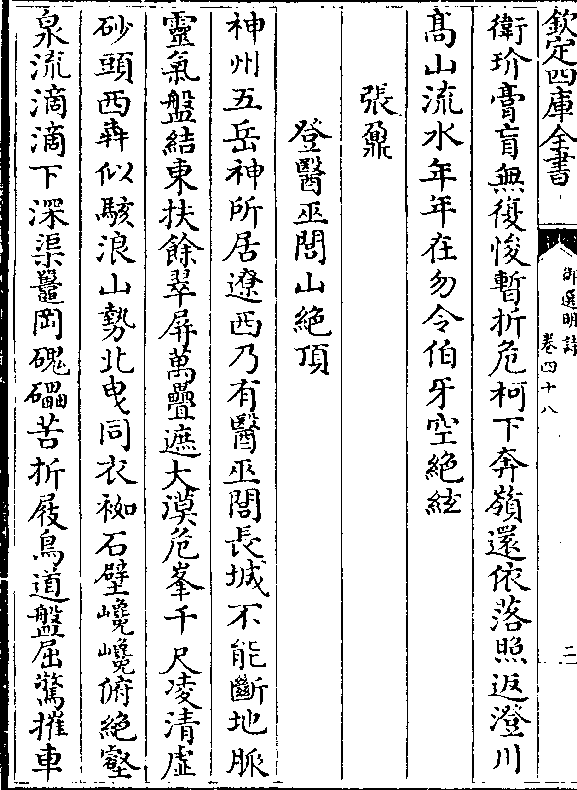 欽定四庫全書
御選明詩
卷四十八
二
衛玠膏肓無復悛暫折危柯下奔嶺還依落照返澄川
髙山流水年年在勿令伯牙空絶絃
張鼐
登醫巫閭山絶頂
神州五岳神所居遼西乃有醫巫閭長城不能斷地脈
靈氣盤結東扶餘翠屏萬疊遮大漠危峯千尺凌清虛
砂頭西犇似駭浪山勢北曳同衣袽石壁巉巉俯絶壑
泉流滴滴下深渠鼉岡磈礧苦折屐鳥道盤屈驚摧車